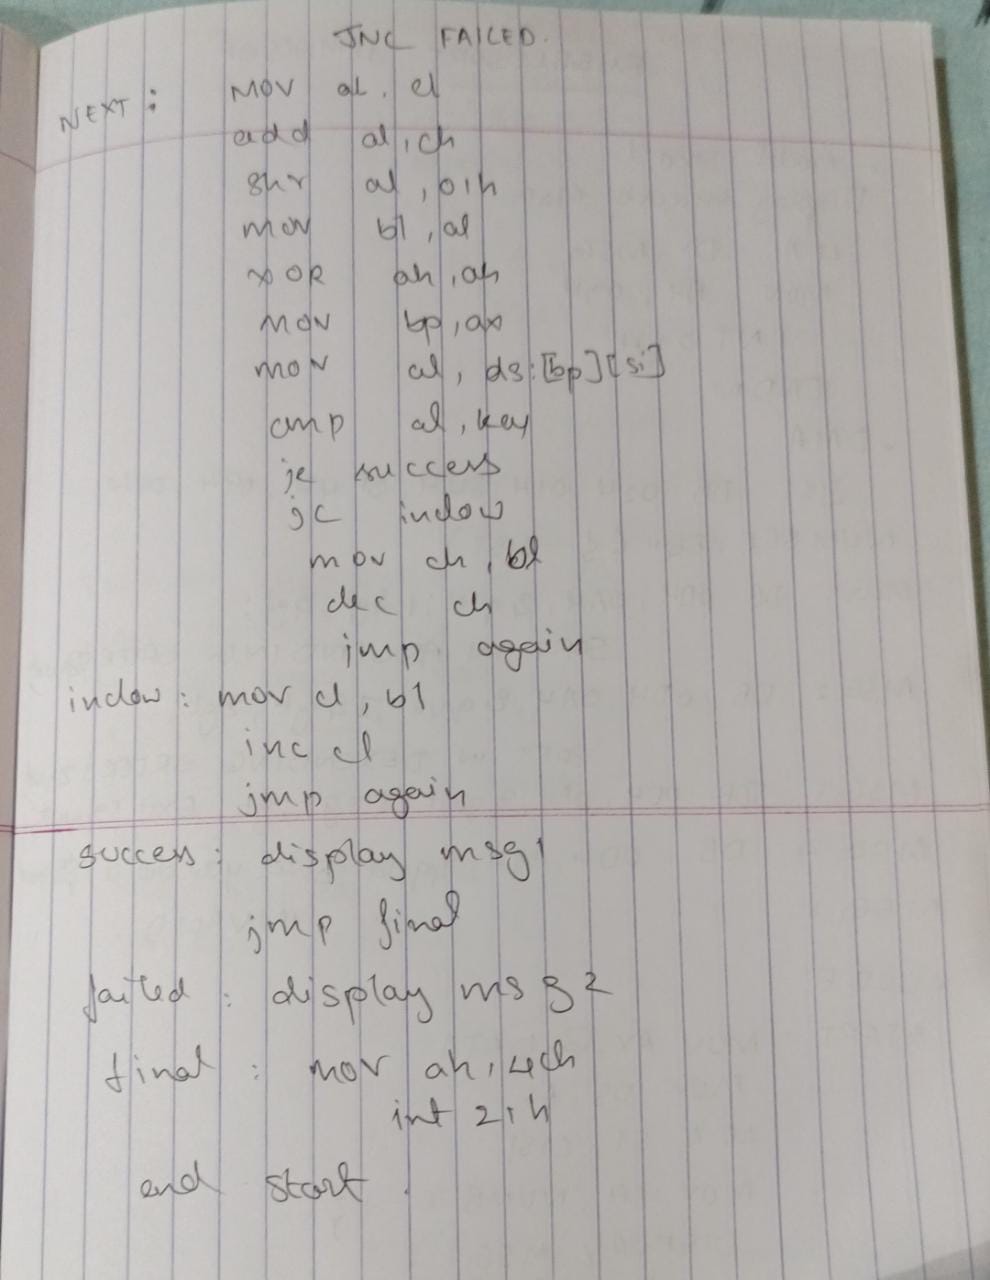 JNC FAILED.
NEXT: MOV al, cl
add al, ch
shr al, 01h
mov bl, al
XOR ah, ah
MOV bp, ax
mov al, ds:[bp][si]
cmp al, key
je success
jc inclow
mov ch, bl
dec ch
jmp again
inclow: mov cl, bl
inc cl
jmp again
success: display msg1
jmp final
failed: display msg2
final: mov ah, 4ch
int 21h
end start.